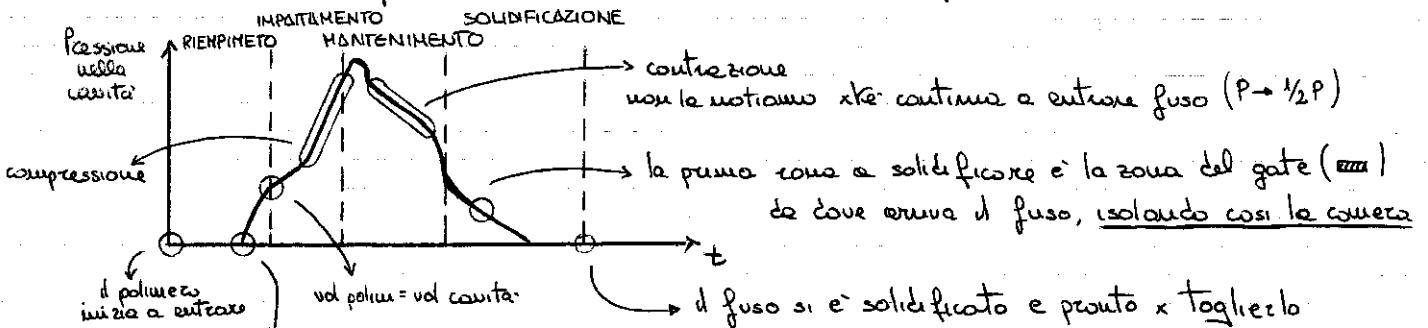 IMPATTAMENTO
SOLIDIFICAZIONE
RIEMPIMETO
MANTENIMENTO
Pressione
nella
cavità
contrazione
non la notiamo xkè continua a entrare fuso (P → ½P)
compressione
la prima zona a solidificare è la zona del gate ( )
da dove arriva il fuso, isolando così la camera
t
il polimero
inizia a entrare
vol polim = vol cavità
il fuso si è solidificato e pronto x toglierlo